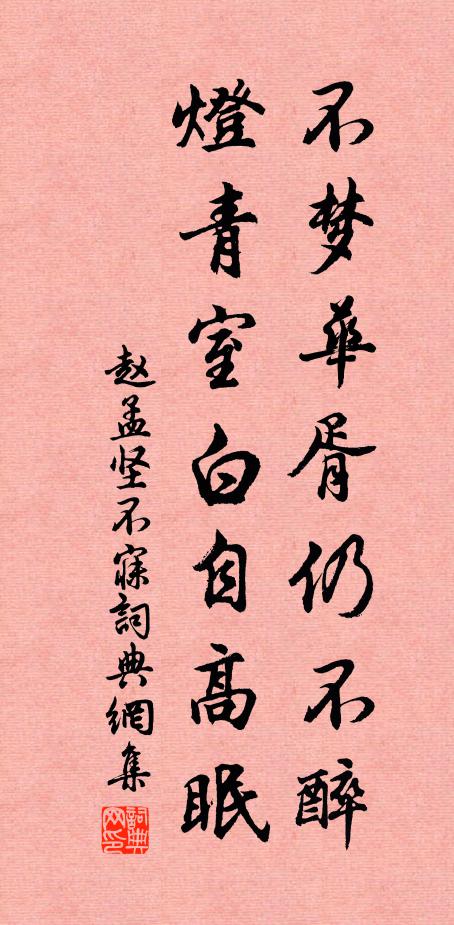 不梦華胥仍不醉
燈青室白自高眠
赵孟坚不寐詞典網集
詞典网印